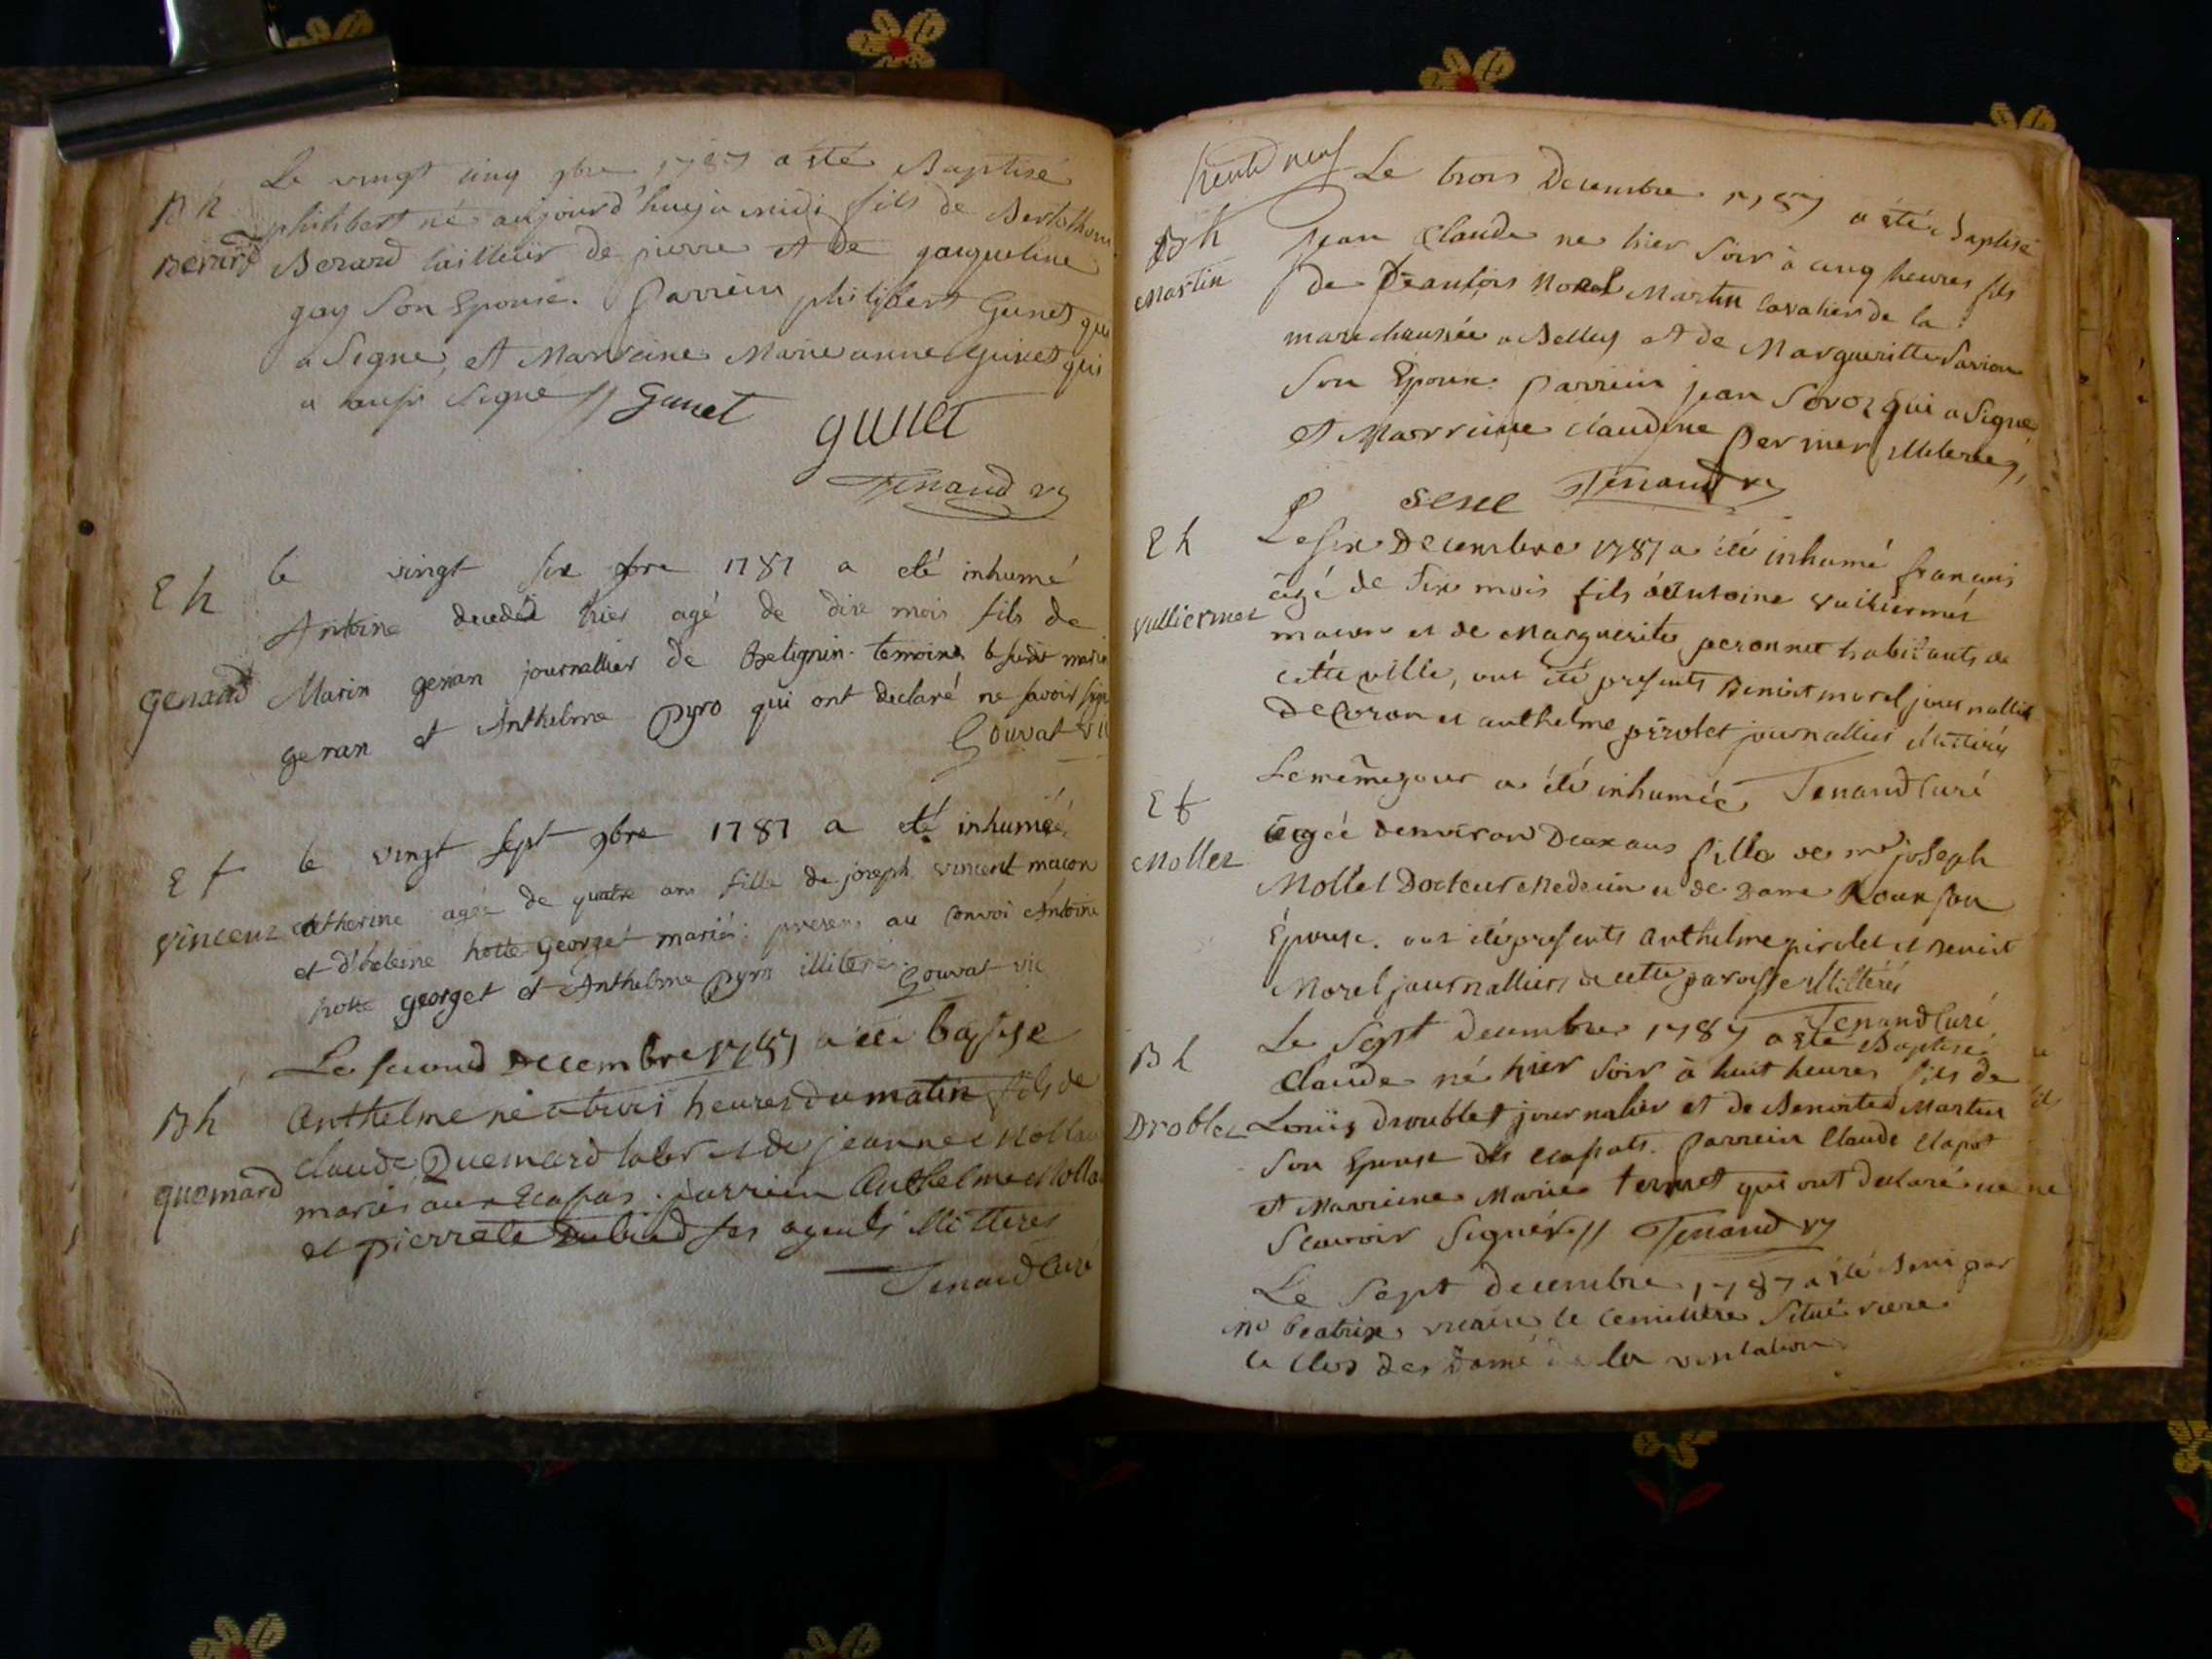 Le vingt cinq 9bre 1787 a été Baptisé
B h
philibert né aujourd'huy à midi fils de Bertholom
Berard
Berard tailleur de pierre et de jacqueline
goy son Epouse. Parrein philibert Gunet qui
a Signé, et Marreine Marie anne guinet qui
a aussi Signé // Gunet
guilet
Tenand vy
E h
le vingt six 9bre 1787 a eté inhumé
Antoine decedé hier agé de dix mois fils de
genand
Marin genan journallier de Betignin. temoins le susdit marin
genan et Anthelme Pyro qui ont declaré ne savoir sign
Gouvat vic
E f
le vingt sept 9bre 1787 a eté inhumée
vincent
Catherine agée de quatre ans fille de joseph vincent macon
et d'heleine hotte georget mariés; presens au convoi Antoine
hotte georget et Anthelme Pyro illiterés. Gouvat vic
Le second Decembre 1787 a été baptise
B h
Anthelme né a trois heures du matin fils de
quemard
claude Quemard labr et de jeanne Mollar
mariés aux Ecassas. parrein Anthelme Molla
et pierrete ses ayeuls illitteres
Tenand Curé
trente neuf
Le trois Decembre 1787 a été Baptisé
B h
Jean Claude ne hier Soir à cinq heures fils
Martin
de françois Noel Martin Cavalier de la
marechaussée a Belley et de Margueritte Savion
son Epouse. Parrein jean Sovoz qui a Signé
et Marreine claudine Permer illiterés,
Tenand vy
E h
Le six Decembre 1787 a été inhumé françois
vulliermet
âgé de Six mois fils d'Antoine vulliermet
macon et de Marguerite peronnet habitants de
cette ville, ont été presents Benoit morel journallier
de Coron et anthelme pirolet journallier illitérés
Le même jour a été inhumée Tenand Curé
E f
agée denviron Deux ans fille de mr joseph
Mollet
Mollet Docteur Medecin et de Dame Roux son
Epouse. ont été presents anthelme pirolet et Benoit
Morel journalliers de cette paroisse illitérés
Tenand Curé
Le Sept Decembre 1787 a été Baptisé
B h
Claude né hier Soir à huit heures fils de
Droblet
Louis droublet journalier et de Benoite Martin
son Epouse des ecassats. Parrein Claude Clapot
et Marreine Marie ternet qui ont declaré ne
Scavoir Signér // Tenand vy
Le Sept decembre 1787 a été Beni par
mr beatrix vicaire le cemitière Situé
le Clos des Dame de la visitation